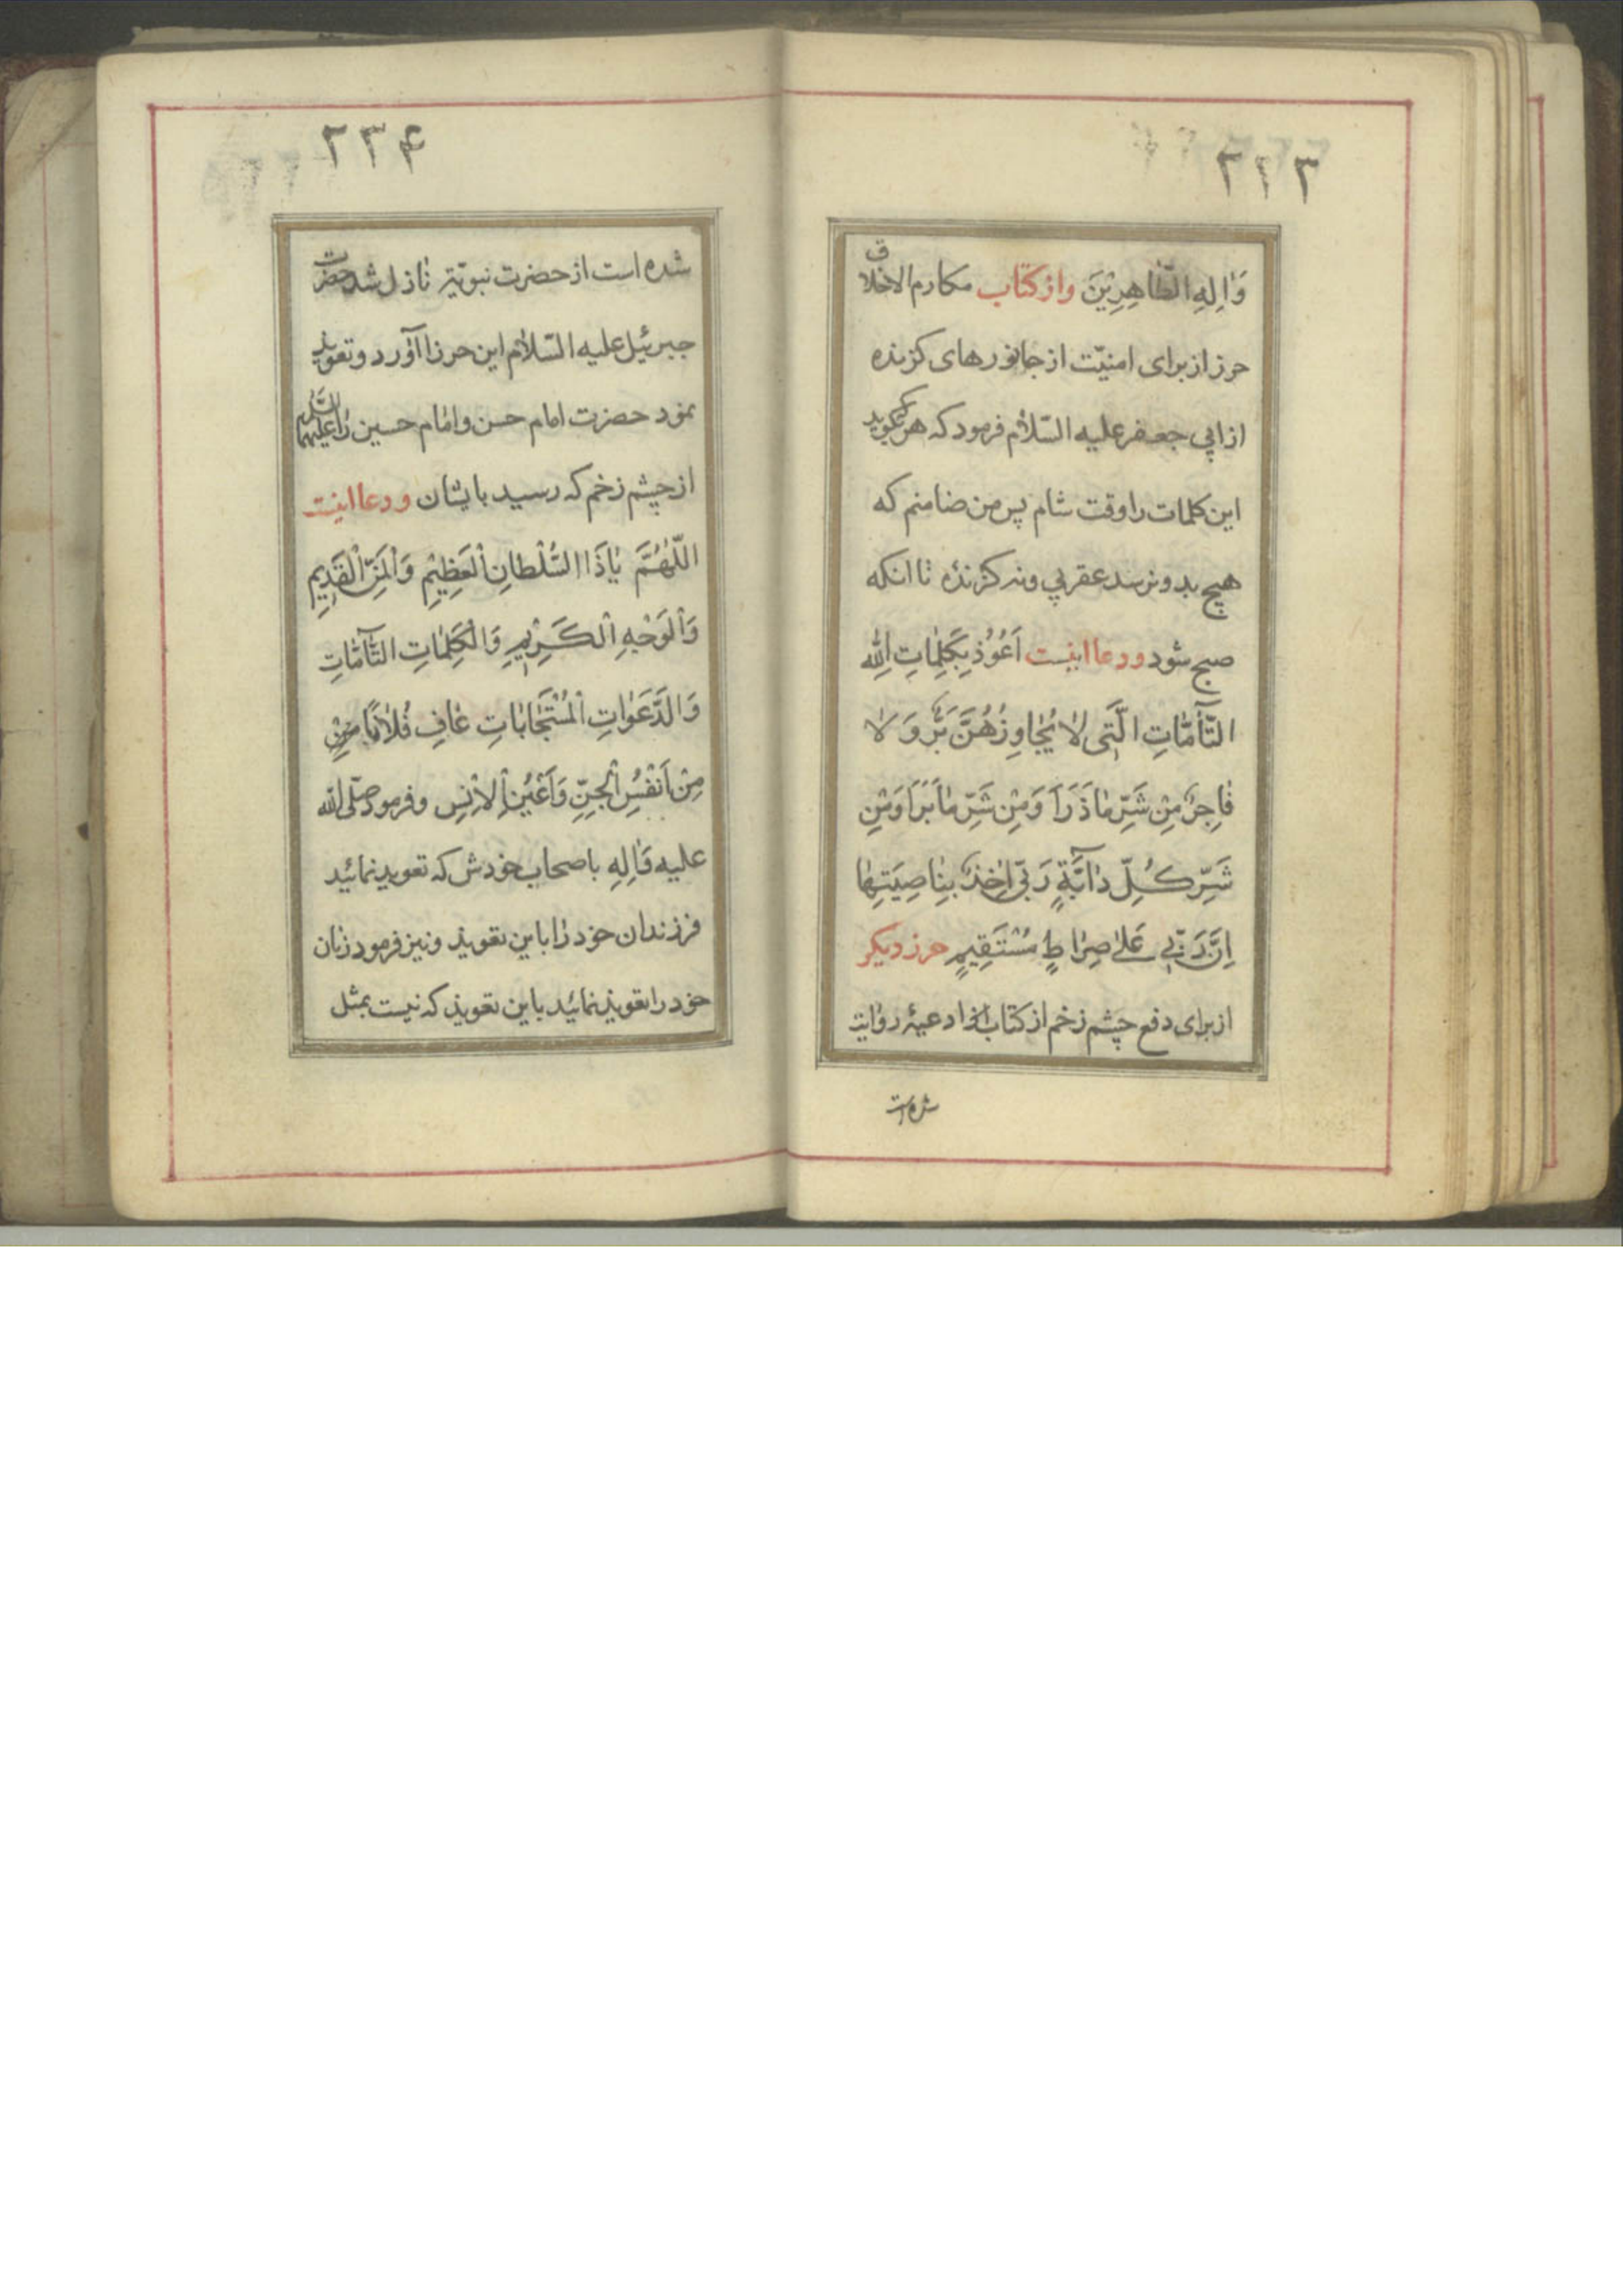 ۲۳۳
وَاٰلِهِ الطّٰاهِرِيْنَ وازكتاب مكارم الاخلاق
حرز از براى امنيّت از جانورهاى كزنده
از ابى جعفر عليه السّلام فرمود كه هركه بگويد
اين كلمات را وقت شام پس من ضامنم كه
هيچ بدو نرسد عقربى ونه كزنده تا انكه
صبح شود ودعا اينست اَعُوْذُ بِكَلِمٰاتِ اللّٰهِ
التّٰآمّٰاتِ الَّتِى لٰا يُجٰاوِزُهُنَّ بَرٌّ وَ لٰا
فٰاجِرٌ مِنْ شَرِّ مٰا ذَرَاَ وَمِنْ شَرِّ مٰا بَرَاَ وَمِنْ
شَرِّ كُلِّ دٰآبَّةٍ رَبّى اٰخِذٌ بِنٰاصِيَتِهٰا
اِنَّ رَبّى عَلٰى صِرٰاطٍ مُسْتَقِيمٍ حرز ديكر
از براى دفع چشم زخم از كتاب ادعيهٔ روايت
شده است
۲۳۴
شده است از حضرت نبويّه نازل شد حضرت
جبرئيل عليه السّلام اين حرز را آورد و تعويذ
نمود حضرت امام حسن و امام حسين را عليهما السّلم
از چشم زخم كه رسيد بايشان ودعا اينست
اللّٰهُمَّ يٰا ذَا السُّلْطٰانِ الْعَظِيْمِ وَالْمَنِّ الْقَدِيمِ
وَالْوَجْهِ الْكَرِيْمِ وَالْكَلِمٰاتِ التّٰآمّٰاتِ
وَالدَّعَوٰاتِ الْمُسْتَجٰابٰاتِ عٰافِ فُلٰانًا مِنْ
مِنْ اَنْفُسِ الْجِنِّ وَاَعْيُنِ الْاِنْسِ وفرمود صلّى اللّه
عليه وَاٰلِهِ باصحاب خودش كه تعويذ نمائيد
فرزندان خود را باين تعويذ ونيز فرمود زنان
خود را تعويذ نمائيد باين تعويذ كه نيست بمثل